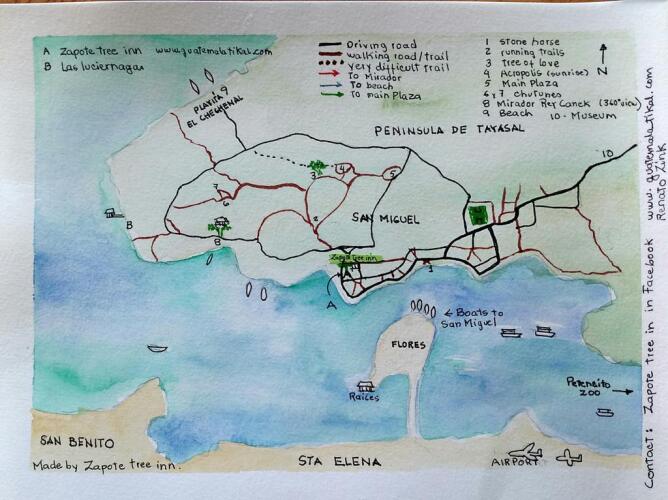 A Zapote tree inn www.guatemalatikal.com
B Las luciernagas
Driving road
walking road/trail
very difficult trail
To Mirador
To beach
To main Plaza
1 stone horse
2 running trails
3 tree of love
4 Acropolis (sunrise)
5 Main Plaza
6 y 7 chutunes
8 Mirador Rey Canek (360° view)
9 Beach 10-Museum
N
PLAYITA 9
EL CHECHENAL
PENINSULA DE TAYASAL
10
3
4
5
7
6
2
SAN MIGUEL
B
8
Zapote tree inn
1
A
← Boats to
San Miguel
FLORES
Raices
Petencito
ZOO
SAN BENITO
Made by Zapote tree inn.
STA ELENA
AIRPORT
Contact: Zapote tree in in Facebook www.guatemalatikal.com
Renato Zink